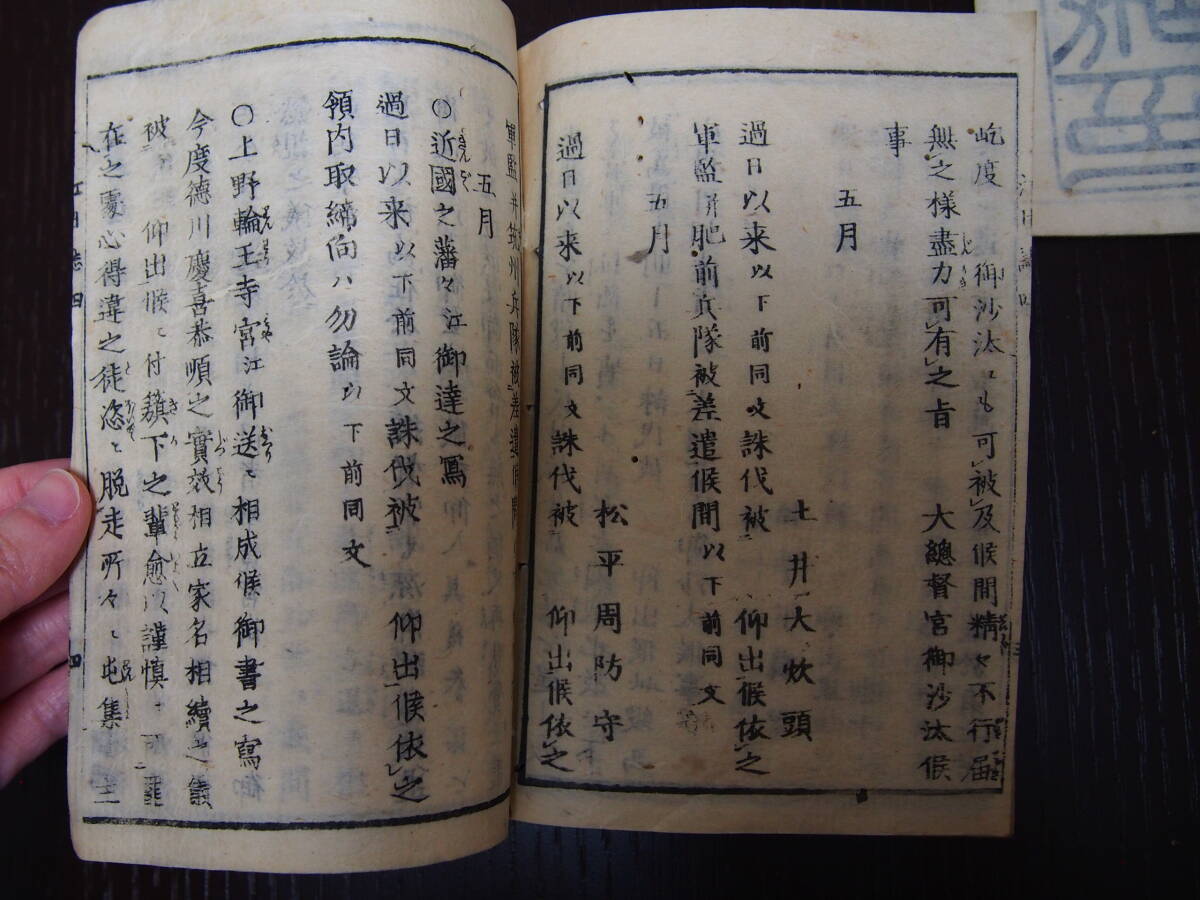 屹度御沙汰ニも可被及候間精々不行届
無之様盡力可有之旨 大總督宮御沙汰候
事
五月
土井大炊頭
過日以来以下前同文誅伐被 仰出候依之
軍監并肥前兵隊被差遣候間以下前同文
五月
松平周防守
過日以来以下前同文誅伐被 仰出候依之
軍監并筑州兵隊被差遣候間
五月
○近國之藩々江御達之寫
過日以来以下前同文誅伐被 仰出候依之
領内取締向ハ勿論以下前同文
○上野輪王寺宮江御送ニ相成候御書之寫
今度德川慶喜恭順之實效相立家名相續之儀
被 仰出候ニ付籏下之輩愈以謹愼
在之處心得違之徒恣ニ脱走所々ニ屯集
江日誌四
四